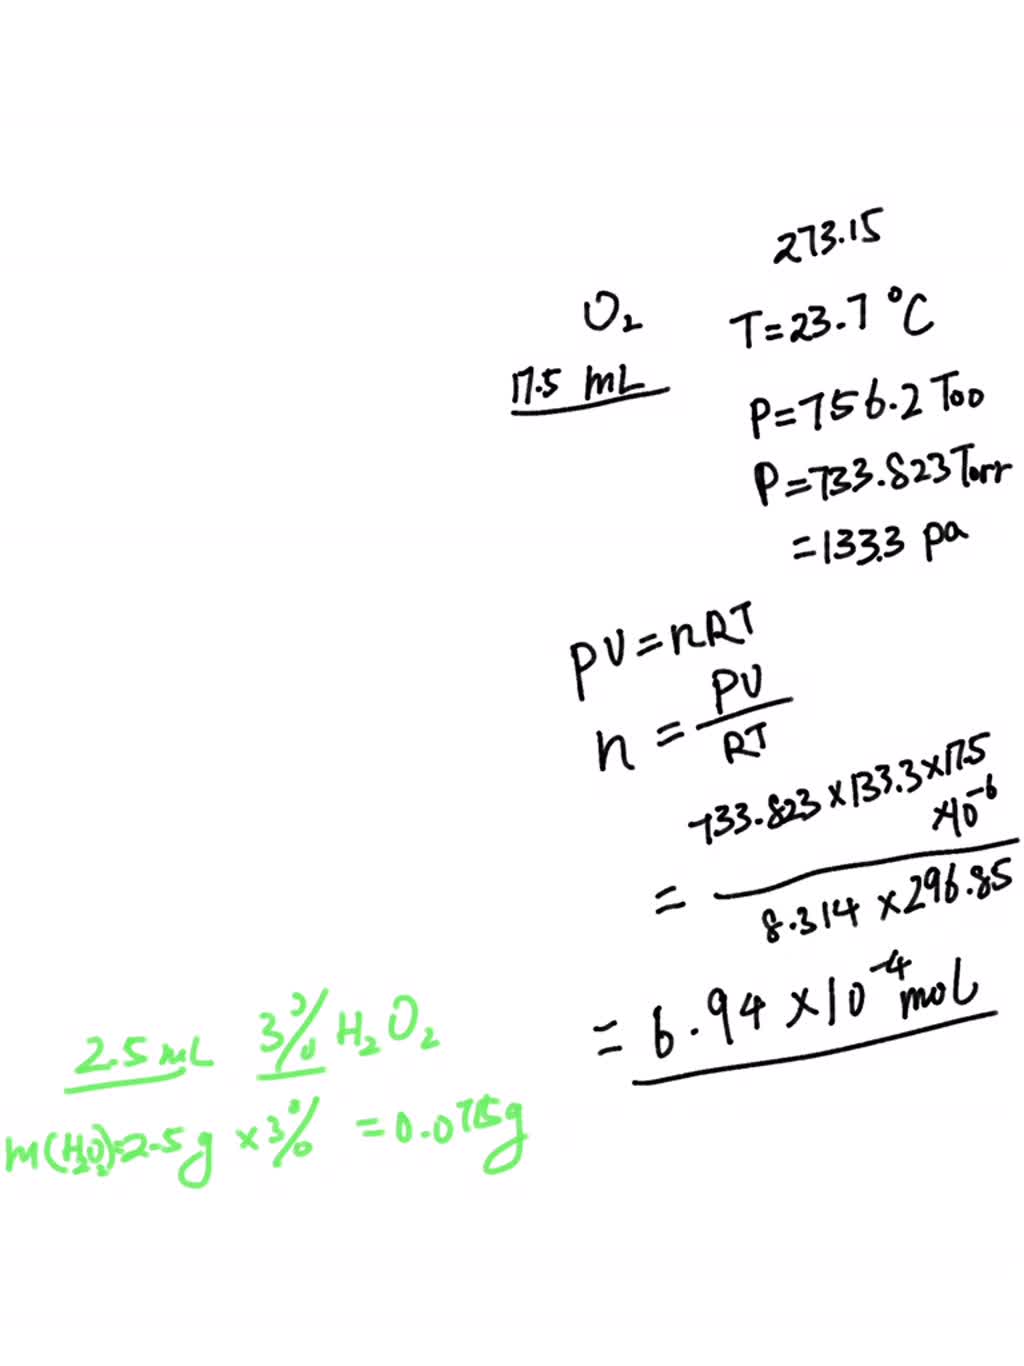 273.15
O₂ T=23.7 °C
17.5 mL
P=756.2 Too
P=733.823Torr
=133.3 pa
PV=nRT
n = PV/RT
= 733.823×133.3×17.5×10⁻⁶ / 8.314×296.85
= 6.94×10⁻⁴ mol
2.5 mL 3% H₂O₂
m(H₂O₂)=2.5g ×3% =0.075g